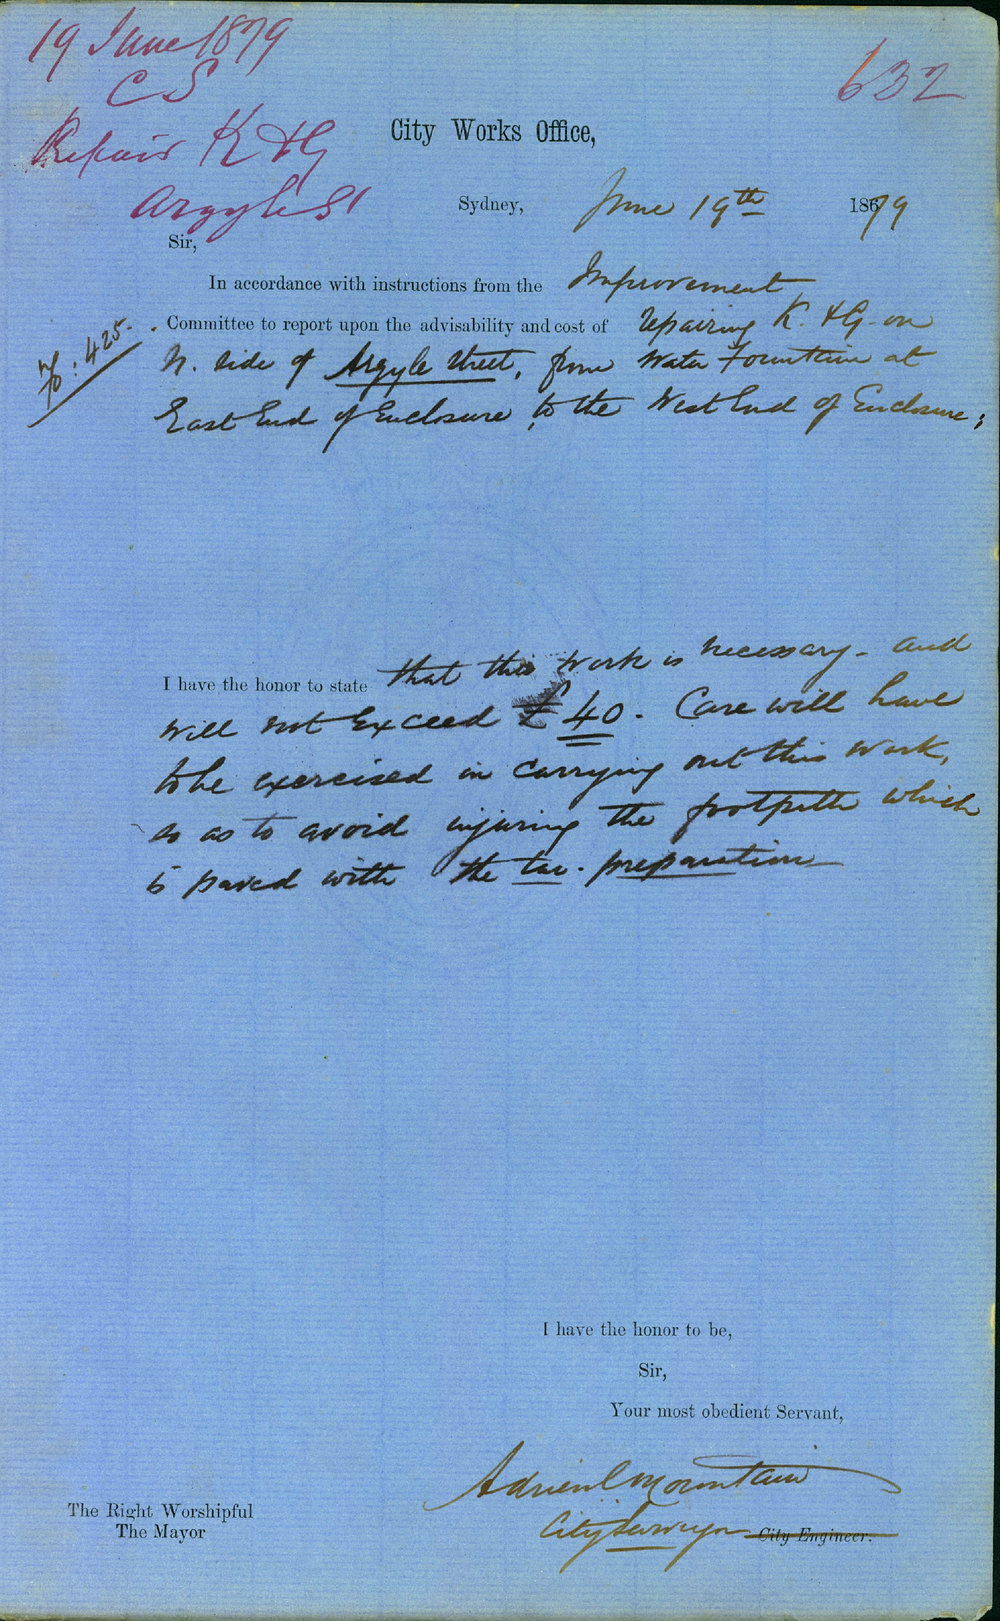 19 June 1879
C S
632
Repair K & G
Argyle St
City Works Office,
Sydney, June 19th 1879
Sir,
In accordance with instructions from the Improvement
Committee to report upon the advisability and cost of repairing K. & G. on
N. side of Argyle Street, from Water Fountain at
East End of Enclosure, to the West End of Enclosure;
425.
I have the honor to state that this work is necessary - and
will not Exceed £40. Care will have
to be exercised in carrying out this work,
so as to avoid injuring the footpath which
is paved with the tar-preparation
I have the honor to be,
Sir,
Your most obedient Servant,
Adrien C Mountain
City Surveyor City Engineer.
The Right Worshipful
The Mayor